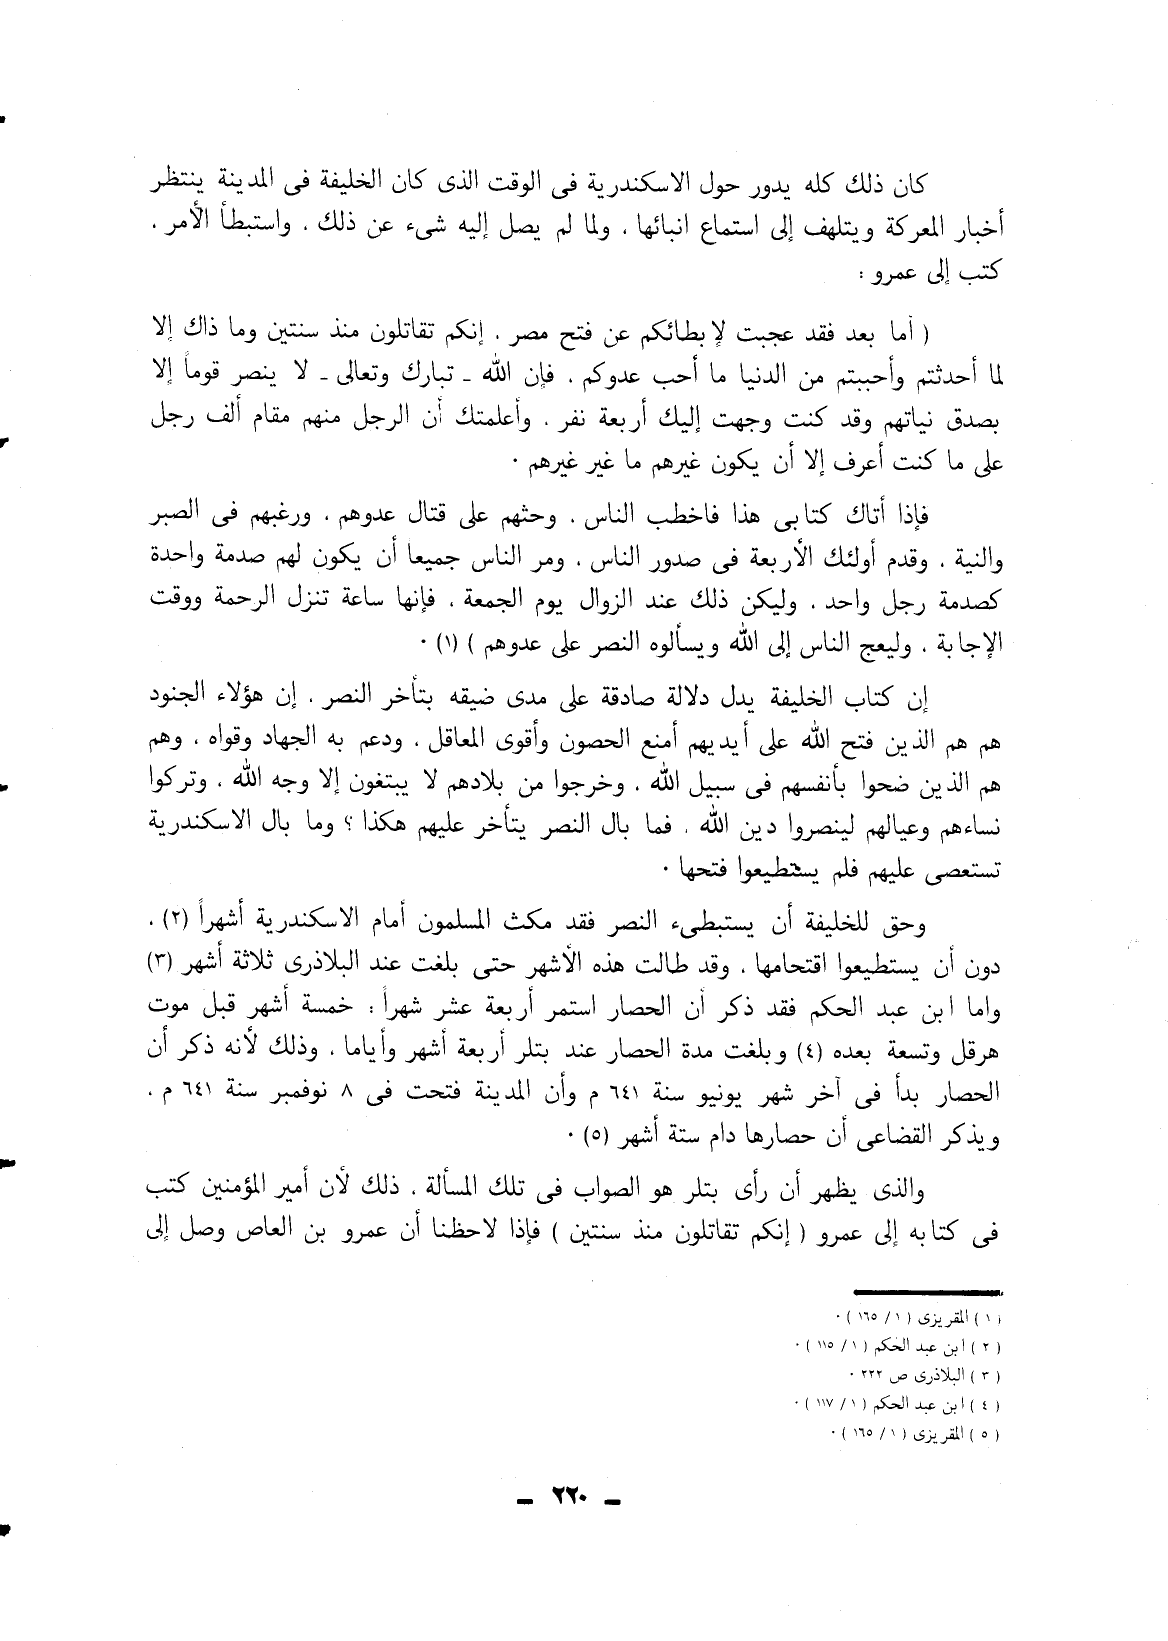 كان ذلك كله يدور حول الاسكندرية فى الوقت الذى كان الخليفة فى المدينة ينتظر
أخبار المعركة ويتلهف إلى استماع انبائها ، ولما لم يصل إليه شىء عن ذلك ، واستبطأ الأمر ،
كتب إلى عمرو :
( أما بعد فقد عجبت لإبطائكم عن فتح مصر ، إنكم تقاتلون منذ سنتين وما ذاك إلا
لما أحدثتم وأحببتم من الدنيا ما أحب عدوكم ، فإن الله ـ تبارك وتعالى ـ لا ينصر قوماً إلا
بصدق نياتهم وقد كنت وجهت إليك أربعة نفر ، وأعلمتك أن الرجل منهم مقام ألف رجل
على ما كنت أعرف إلا أن يكون غيرهم ما غير غيرهم ٠
فإذا أتاك كتابى هذا فاخطب الناس ، وحثهم على قتال عدوهم ، ورغبهم فى الصبر
والنية ، وقدم أولئك الأربعة فى صدور الناس ، ومر الناس جميعا أن يكون لهم صدمة واحدة
كصدمة رجل واحد ، وليكن ذلك عند الزوال يوم الجمعة ، فإنها ساعة تنزل الرحمة ووقت
الإجابة ، وليعج الناس إلى الله ويسألوه النصر على عدوهم ) (١) ٠
إن كتاب الخليفة يدل دلالة صادقة على مدى ضيقه بتأخر النصر ، إن هؤلاء الجنود
هم هم الذين فتح الله على أيديهم أمنع الحصون وأقوى المعاقل ، ودعم به الجهاد وقواه ، وهم
هم الذين ضحوا بأنفسهم فى سبيل الله ، وخرجوا من بلادهم لا يبتغون إلا وجه الله ، وتركوا
نساءهم وعيالهم لينصروا دين الله ، فما بال النصر يتأخر عليهم هكذا ؟ وما بال الاسكندرية
تستعصى عليهم فلم يستطيعوا فتحها ٠
وحق للخليفة أن يستبطىء النصر فقد مكث المسلمون أمام الاسكندرية أشهراً (٢) ،
دون أن يستطيعوا اقتحامها ، وقد طالت هذه الأشهر حتى بلغت عند البلاذرى ثلاثة أشهر (٣)
واما ابن عبد الحكم فقد ذكر أن الحصار استمر أربعة عشر شهراً : خمسة أشهر قبل موت
هرقل وتسعة بعده (٤) وبلغت مدة الحصار عند بتلر أربعة أشهر وأياما ، وذلك لأنه ذكر أن
الحصار بدأ فى آخر شهر يونيو سنة ٦٤١ م وأن المدينة فتحت فى ٨ نوفمبر سنة ٦٤١ م ،
ويذكر القضاعى أن حصارها دام ستة أشهر (٥) ٠
والذى يظهر أن رأى بتلر هو الصواب فى تلك المسألة ، ذلك لأن أمير المؤمنين كتب
فى كتابه إلى عمرو ( إنكم تقاتلون منذ سنتين ) فإذا لاحظنا أن عمرو بن العاص وصل إلى
( ١ ) المقريزى ( ١ / ١٦٥ ) ٠
( ٢ ) ابن عبد الحكم ( ١ / ١١٥ ) ٠
( ٣ ) البلاذرى ص ٢٢٢ ٠
( ٤ ) ابن عبد الحكم ( ١ / ١١٧ ) ٠
( ٥ ) المقريزى ( ١ / ١٦٥ ) ٠
ـ ٢٢٠ ـ